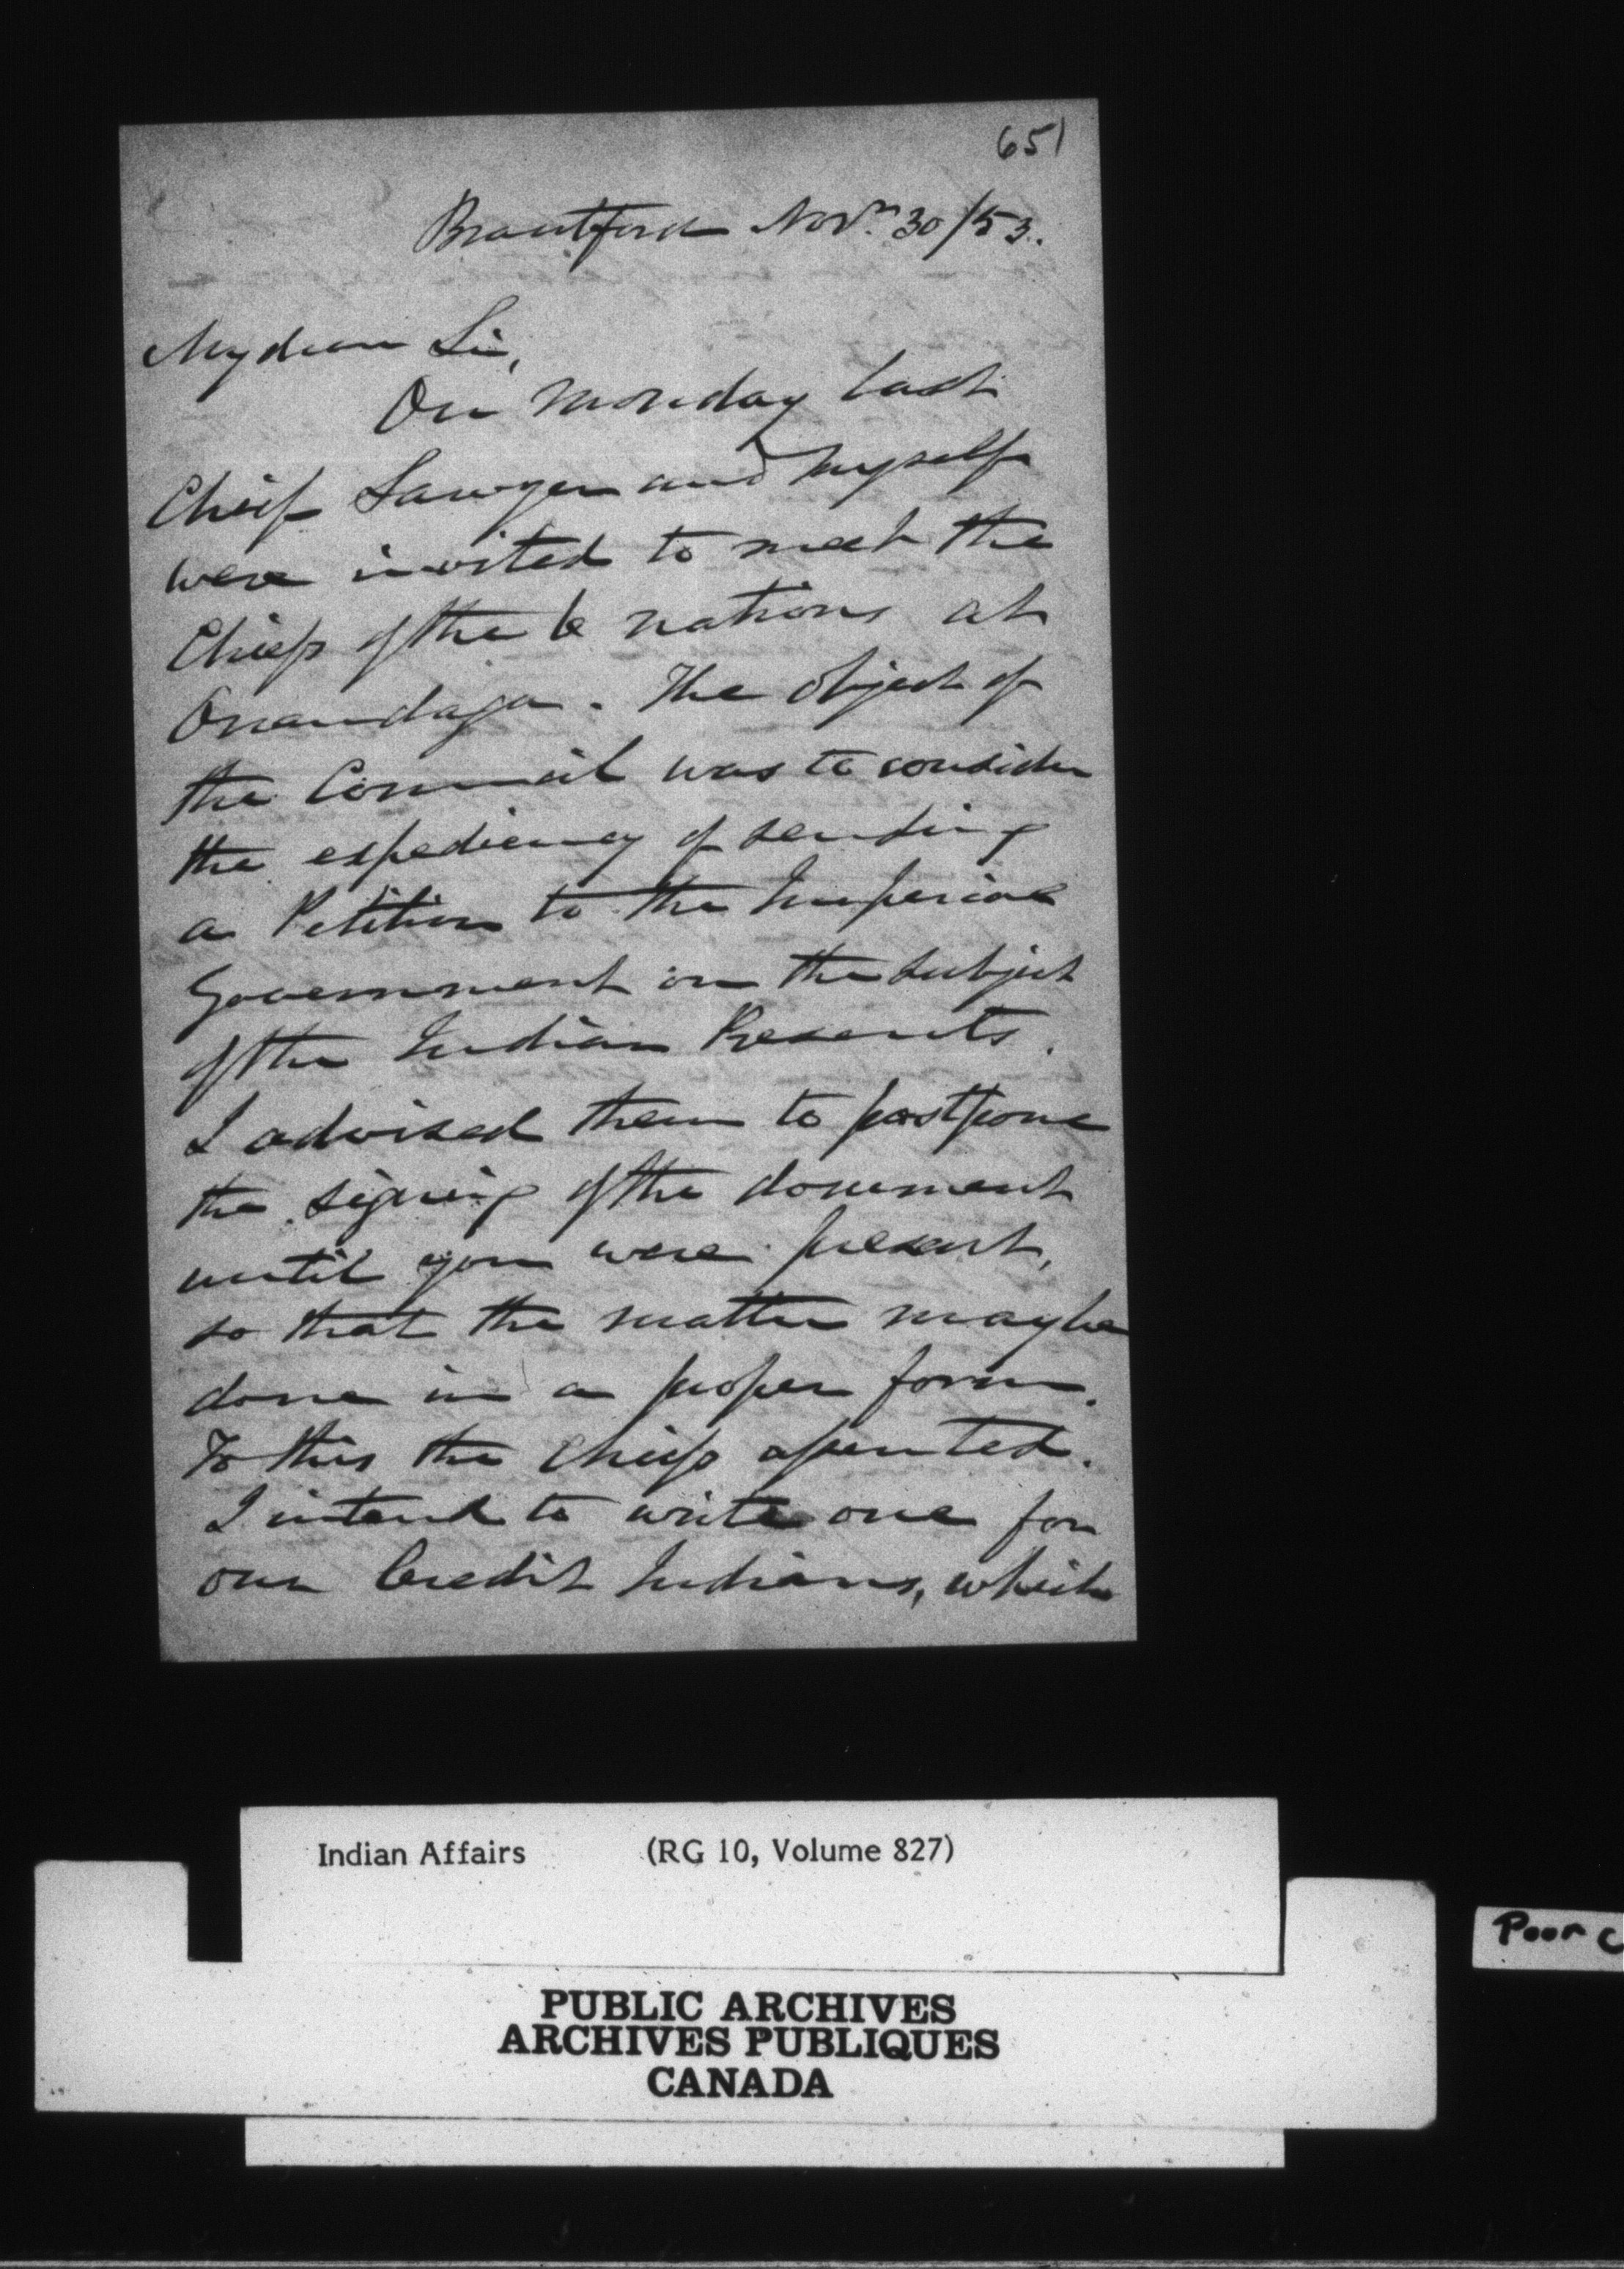 651
Brantford Novr. 30/53.
My dear Sir,
On monday last
Chief Sawyer and myself
were invited to meet the
Chiefs of the 6 nations at
Onondaga. The object of
the Council was to consider
the expediency of sending
a Petition to the Imperial
Government on the subject
of the Indian Presents.
I advised them to postpone
the signing of the document
until you were present,
so that the matter may be
done in a proper form.
To this the chiefs assented.
I intend to write one for
our Credit Indians, which
Indian Affairs (RG 10, Volume 827)
Poor
PUBLIC ARCHIVES
ARCHIVES PUBLIQUES
CANADA